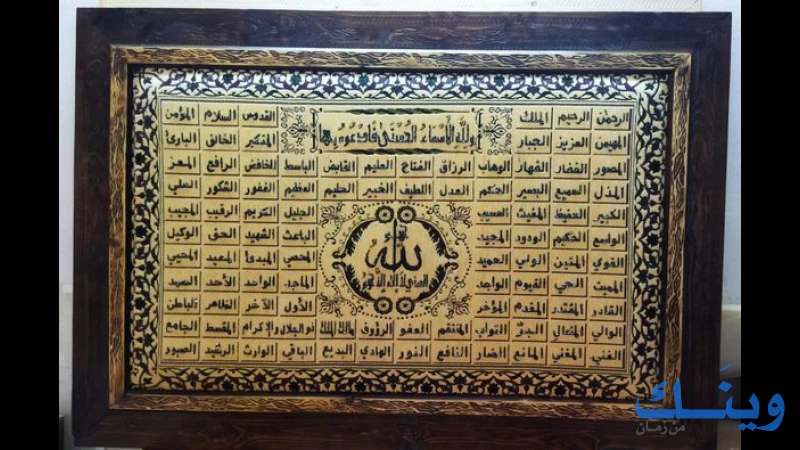 الرحمن الرحيم الملك القدوس السلام المؤمن
ولله الأسماء الحسنى فادعوه بها
المهيمن العزيز الجبار المتكبر الخالق البارئ
المصور الغفار القهار الوهاب الرزاق الفتاح العليم القابض الباسط الخافض الرافع المعز
المذل السميع البصير الحكم العدل اللطيف الخبير الحليم العظيم الغفور الشكور العلي
الكبير الحفيظ المقيت الحسيب الجليل الكريم الرقيب المجيب
الواسع الحكيم الودود المجيد الباعث الشهيد الحق الوكيل
الله
القوي المتين الولي الحميد المحصي المبدئ المعيد المحيي
المميت الحي القيوم الواجد الماجد الواحد الأحد الصمد
القادر المقتدر المقدم المؤخر الأول الآخر الظاهر الباطن
الوالي المتعال البر التواب المنتقم العفو الرؤوف مالك الملك ذو الجلال والإكرام المقسط الجامع
الغني المغني المانع الضار النافع النور الهادي البديع الباقي الوارث الرشيد الصبور
وينك
من زمان